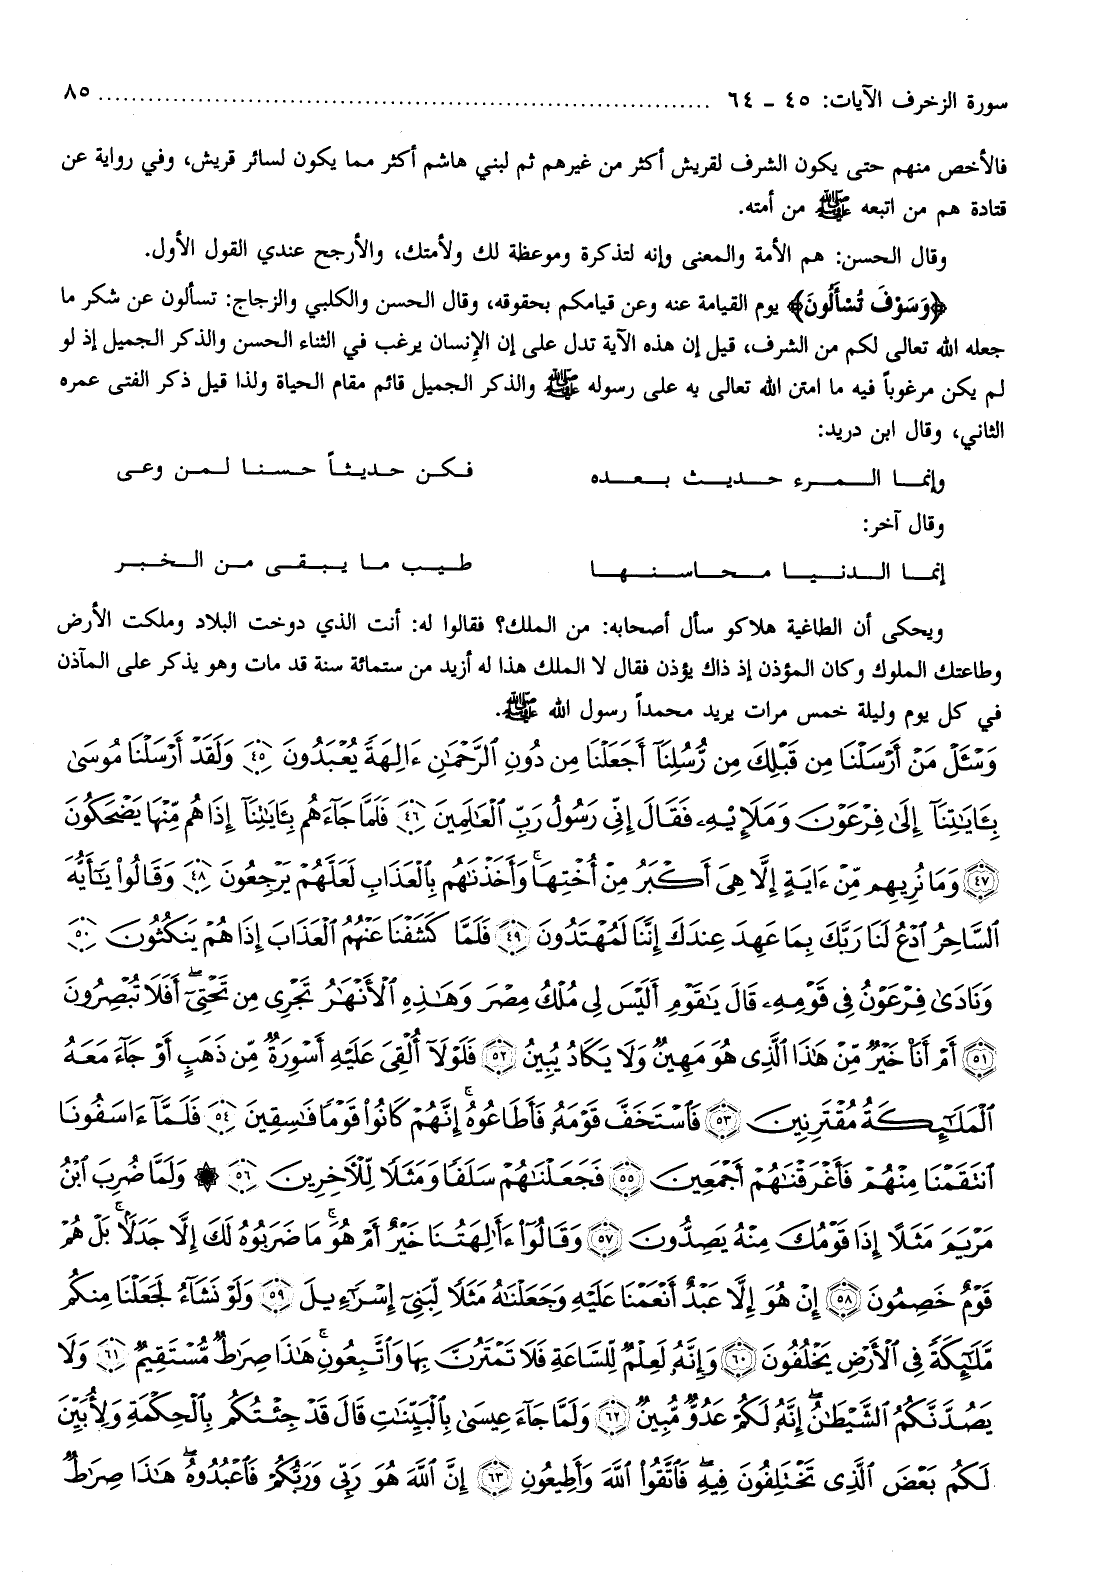 سورة الزخرف الآيات: ٤٥ - ٦٤ ........................................................................ ٨٥
فالأخص منهم حتى يكون الشرف لقريش أكثر من غيرهم ثم لبني هاشم أكثر مما يكون لسائر قريش، وفي رواية عن
قتادة هم من اتبعه ﷺ من أمته.
وقال الحسن: هم الأمة والمعنى وإنه لتذكرة وموعظة لك ولأمتك، والأرجح عندي القول الأول.
﴿وَسَوْفَ تُسْأَلُونَ﴾ يوم القيامة عنه وعن قيامكم بحقوقه، وقال الحسن والكلبي والزجاج: تسألون عن شكر ما
جعله الله تعالى لكم من الشرف، قيل إن هذه الآية تدل على إن الإنسان يرغب في الثناء الحسن والذكر الجميل إذ لو
لم يكن مرغوباً فيه ما امتن الله تعالى به على رسوله ﷺ والذكر الجميل قائم مقام الحياة ولذا قيل ذكر الفتى عمره
الثاني، وقال ابن دريد:
وإنما المرء حديث بعده فكن حديثاً حسنا لمن وعى
وقال آخر:
إنما الدنيا محاسنها طيب ما يبقى من الخبر
ويحكى أن الطاغية هلاكو سأل أصحابه: من الملك؟ فقالوا له: أنت الذي دوخت البلاد وملكت الأرض
وطاعتك الملوك وكان المؤذن إذ ذاك يؤذن فقال لا الملك هذا له أزيد من ستمائة سنة قد مات وهو يذكر على المآذن
في كل يوم وليلة خمس مرات يريد محمداً رسول الله ﷺ.
وَسْـَٔلْ مَنْ أَرْسَلْنَا مِن قَبْلِكَ مِن رُّسُلِنَآ أَجَعَلْنَا مِن دُونِ ٱلرَّحْمَـٰنِ ءَالِهَةً يُعْبَدُونَ ٤٥ وَلَقَدْ أَرْسَلْنَا مُوسَىٰ
بِـَٔايَـٰتِنَآ إِلَىٰ فِرْعَوْنَ وَمَلَإِي۟هِۦ فَقَالَ إِنِّى رَسُولُ رَبِّ ٱلْعَـٰلَمِينَ ٤٦ فَلَمَّا جَآءَهُم بِـَٔايَـٰتِنَآ إِذَا هُم مِّنْهَا يَضْحَكُونَ
٤٧ وَمَا نُرِيهِم مِّنْ ءَايَةٍ إِلَّا هِىَ أَكْبَرُ مِنْ أُخْتِهَا ۖ وَأَخَذْنَـٰهُم بِٱلْعَذَابِ لَعَلَّهُمْ يَرْجِعُونَ ٤٨ وَقَالُوا۟ يَـٰٓأَيُّهَ
ٱلسَّاحِرُ ٱدْعُ لَنَا رَبَّكَ بِمَا عَهِدَ عِندَكَ إِنَّنَا لَمُهْتَدُونَ ٤٩ فَلَمَّا كَشَفْنَا عَنْهُمُ ٱلْعَذَابَ إِذَا هُمْ يَنكُثُونَ ٥٠
وَنَادَىٰ فِرْعَوْنُ فِى قَوْمِهِۦ قَالَ يَـٰقَوْمِ أَلَيْسَ لِى مُلْكُ مِصْرَ وَهَـٰذِهِ ٱلْأَنْهَـٰرُ تَجْرِى مِن تَحْتِىٓ ۖ أَفَلَا تُبْصِرُونَ
٥١ أَمْ أَنَا۠ خَيْرٌ مِّنْ هَـٰذَا ٱلَّذِى هُوَ مَهِينٌ وَلَا يَكَادُ يُبِينُ ٥٢ فَلَوْلَآ أُلْقِىَ عَلَيْهِ أَسْوِرَةٌ مِّن ذَهَبٍ أَوْ جَآءَ مَعَهُ
ٱلْمَلَـٰٓئِكَةُ مُقْتَرِنِينَ ٥٣ فَٱسْتَخَفَّ قَوْمَهُۥ فَأَطَاعُوهُ ۚ إِنَّهُمْ كَانُوا۟ قَوْمًا فَـٰسِقِينَ ٥٤ فَلَمَّآ ءَاسَفُونَا
ٱنتَقَمْنَا مِنْهُمْ فَأَغْرَقْنَـٰهُمْ أَجْمَعِينَ ٥٥ فَجَعَلْنَـٰهُمْ سَلَفًا وَمَثَلًا لِّلْـَٔاخِرِينَ ٥٦ ۞ وَلَمَّا ضُرِبَ ٱبْنُ
مَرْيَمَ مَثَلًا إِذَا قَوْمُكَ مِنْهُ يَصِدُّونَ ٥٧ وَقَالُوٓا۟ ءَأَـٰلِهَتُنَا خَيْرٌ أَمْ هُوَ ۚ مَا ضَرَبُوهُ لَكَ إِلَّا جَدَلًۢا ۚ بَلْ هُمْ
قَوْمٌ خَصِمُونَ ٥٨ إِنْ هُوَ إِلَّا عَبْدٌ أَنْعَمْنَا عَلَيْهِ وَجَعَلْنَـٰهُ مَثَلًا لِّبَنِىٓ إِسْرَٰٓءِيلَ ٥٩ وَلَوْ نَشَآءُ لَجَعَلْنَا مِنكُم
مَّلَـٰٓئِكَةً فِى ٱلْأَرْضِ يَخْلُفُونَ ٦٠ وَإِنَّهُۥ لَعِلْمٌ لِّلسَّاعَةِ فَلَا تَمْتَرُنَّ بِهَا وَٱتَّبِعُونِ ۚ هَـٰذَا صِرَٰطٌ مُّسْتَقِيمٌ ٦١ وَلَا
يَصُدَّنَّكُمُ ٱلشَّيْطَـٰنُ ۖ إِنَّهُۥ لَكُمْ عَدُوٌّ مُّبِينٌ ٦٢ وَلَمَّا جَآءَ عِيسَىٰ بِٱلْبَيِّنَـٰتِ قَالَ قَدْ جِئْتُكُم بِٱلْحِكْمَةِ وَلِأُبَيِّنَ
لَكُم بَعْضَ ٱلَّذِى تَخْتَلِفُونَ فِيهِ ۖ فَٱتَّقُوا۟ ٱللَّهَ وَأَطِيعُونِ ٦٣ إِنَّ ٱللَّهَ هُوَ رَبِّى وَرَبُّكُمْ فَٱعْبُدُوهُ ۚ هَـٰذَا صِرَٰطٌ